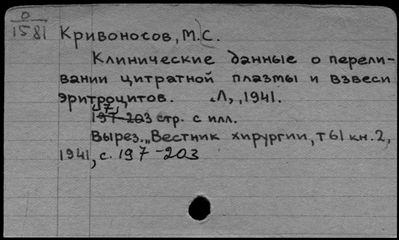 О
1581
Кривоносов, М.С.
Клинические данные о перели-
вании цитратной плазмы и взвеси
эритроцитов. Л., 1941.
[7]
197-203 стр. с илл.
Вырез. „Вестник хирургии, т 61 кн. 2,
1941, с. 197-203